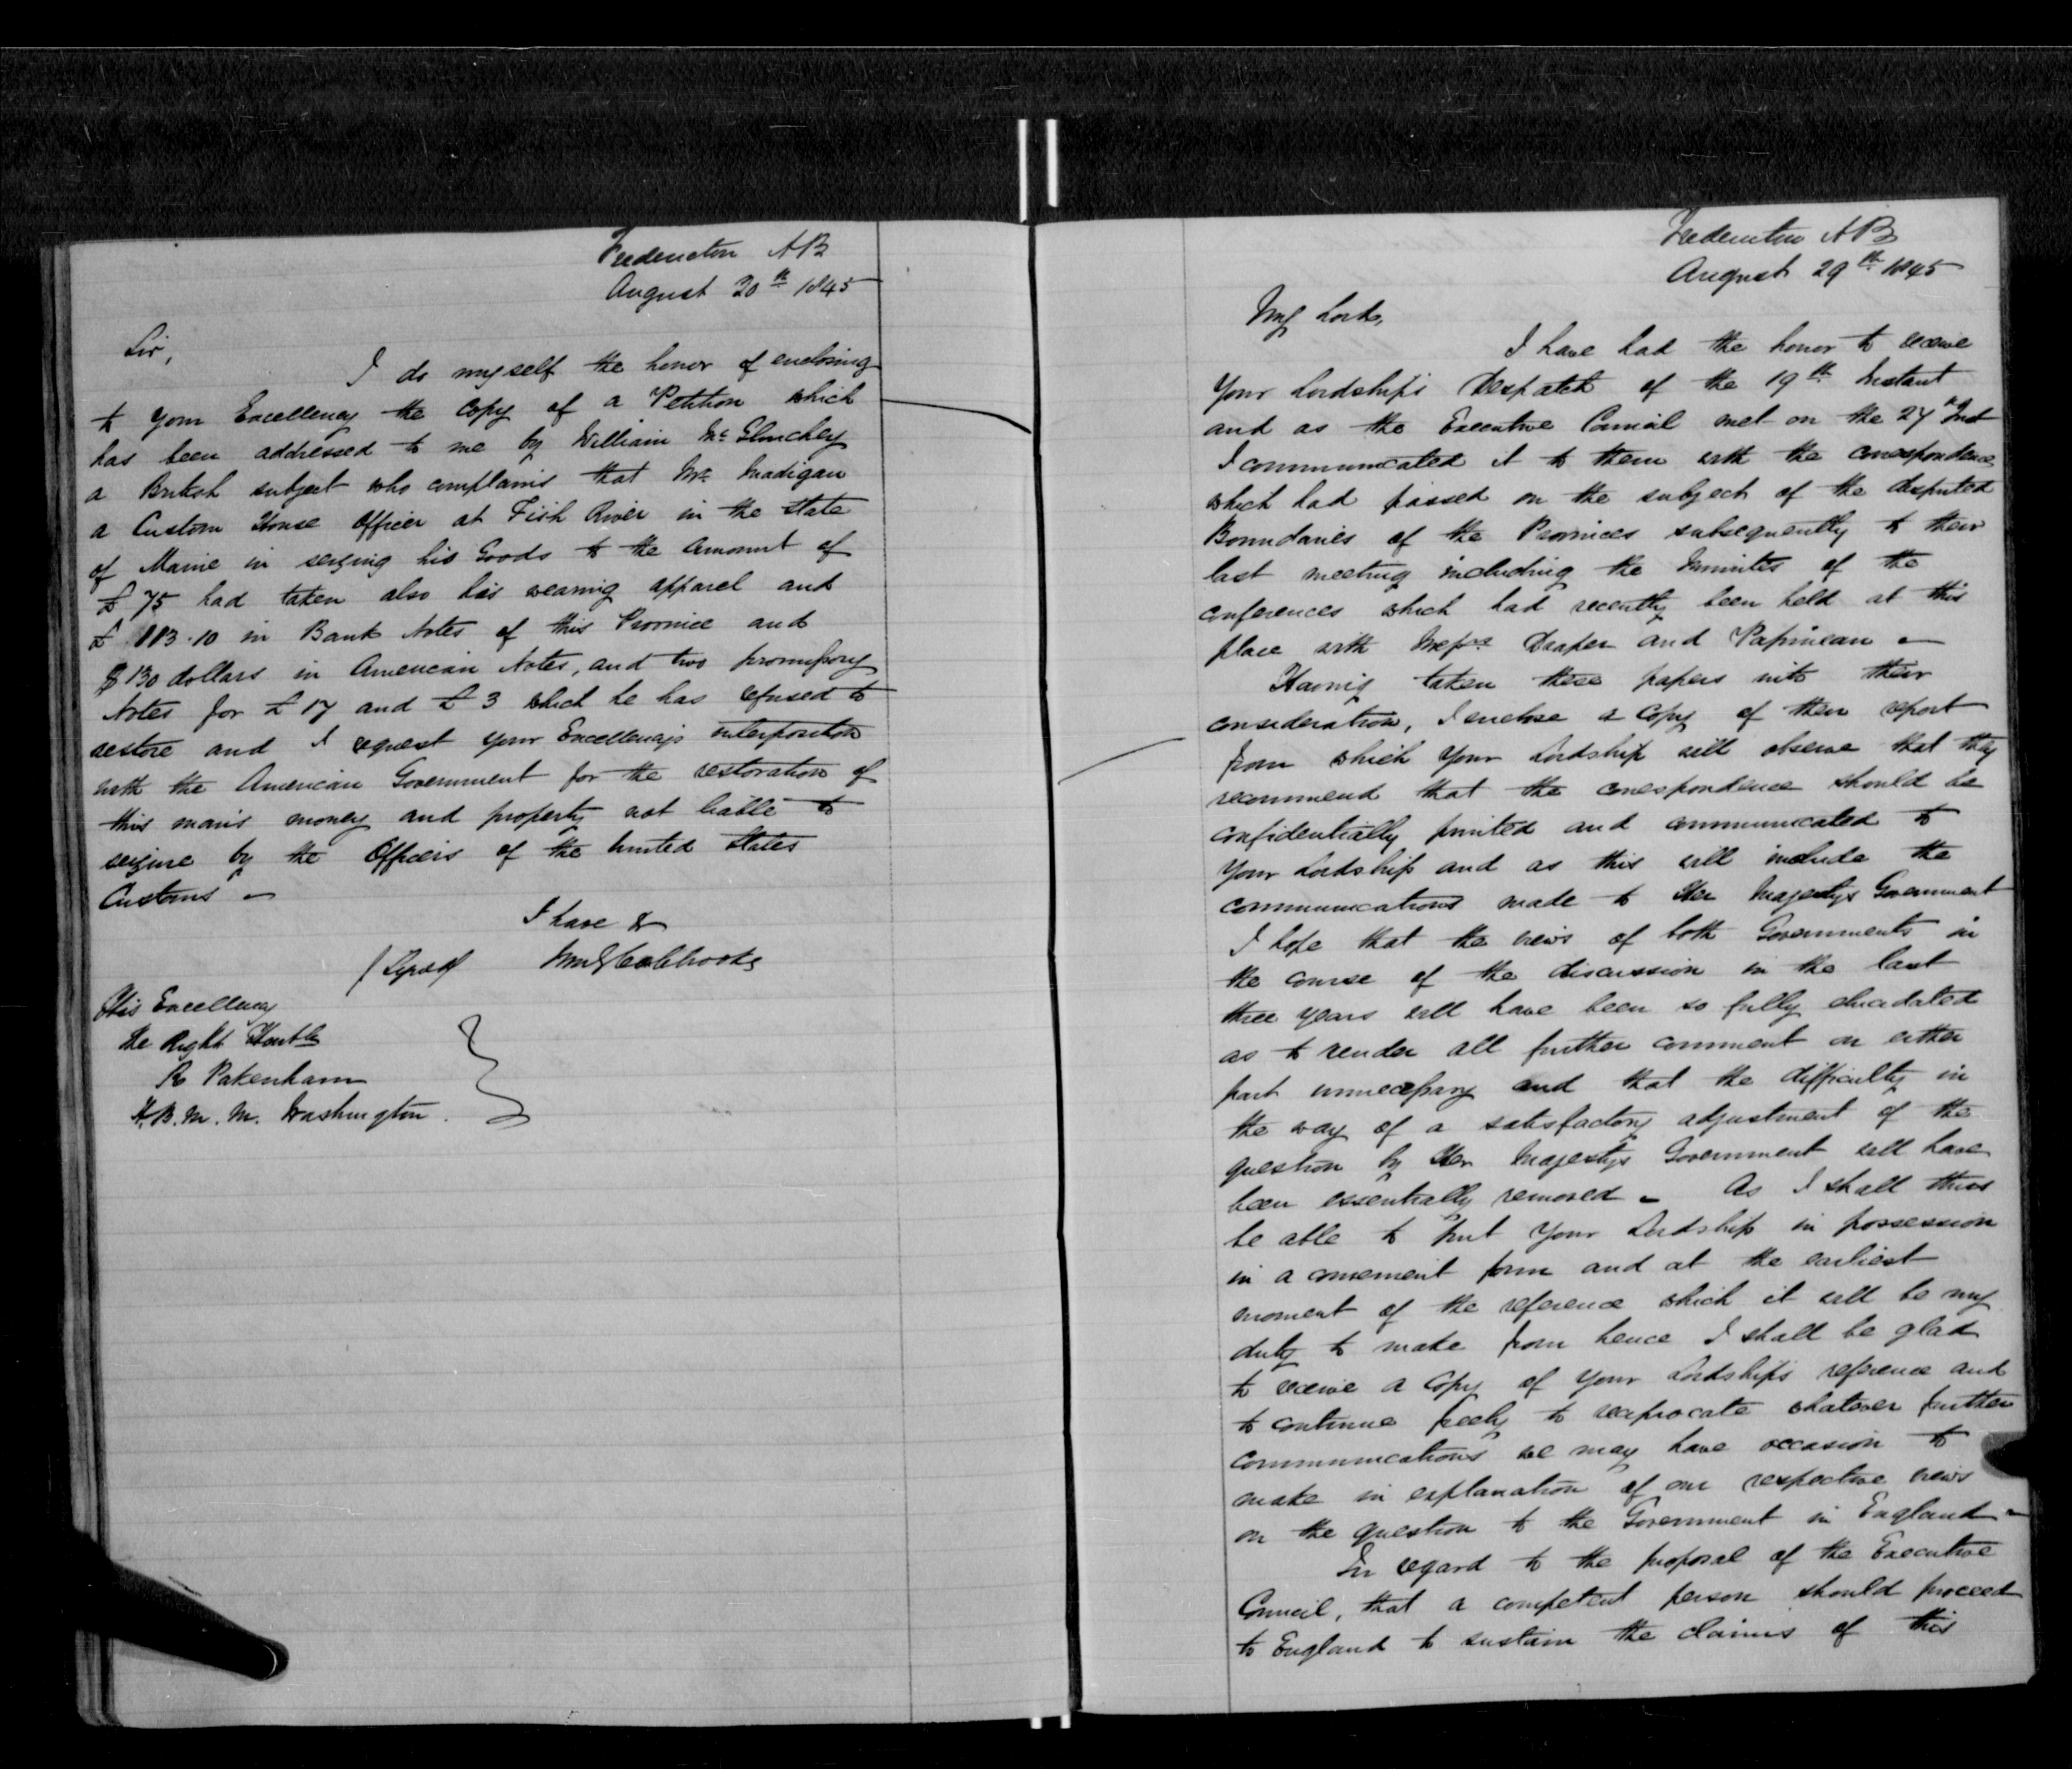 Fredericton NB
August 20th 1845
Sir,
I do myself the honor of enclosing
to your Excellency the copy of a Petition which
has been addressed to me by William
a British subject who complains that Mr. Madigan
a Custom House Officer at Fish River in the State
of Maine in seizing his Goods to the amount of
£75 had taken also his wearing apparel and
£ 113.10 in Bank Notes of this Province and
$130 dollars in American Notes, and two promissory
Notes for £17 and £3 which he has refused to
restore and I request your Excellency's interposition
with the American Government for the restoration of
this man's money and property not liable to
seizure by the Officers of the United States
Customs -
I have &
(Signed) Wm G Colebrooke
His Excellency
the Right Honble
R Pakenham
H.B.M.M. Washington.
Fredericton NB
August 29th 1845
My Lord,
I have had the honor to receive
Your Lordship's Despatch of the 19th Instant
and as the Executive Council met on the 27th Inst
I communicated it to them with the correspondence
which had passed on the subject of the disputed
Boundaries of the Provinces subsequently to their
last meeting including the Minutes of the
conferences which had recently been held at this
place with Messrs Draper and Papineau -
Having taken these papers into their
consideration, I enclose a copy of their report
from which Your Lordship will observe that they
recommend that the correspondence should be
confidentially printed and communicated to
Your Lordship and as this will include the
communications made to Her Majesty's Government
I hope that the views of both Governments in
the course of the discussion in the last
three years will have been so fully elucidated
as to render all further comment on either
part unnecessary and that the difficulty in
the way of a satisfactory adjustment of the
question by Her Majesty's Government will have
been essentially removed - As I shall thus
be able to put Your Lordship in possession
in a convenient form and at the earliest
moment of the reference which it will be my
duty to make from hence I shall be glad
to receive a copy of Your Lordship's reference and
to continue freely to reciprocate whatever further
communications we may have occasion to
make in explanation of our respective views
on the question to the Government in England -
In regard to the proposal of the Executive
Council, that a competent person should proceed
to England to sustain the claims of this